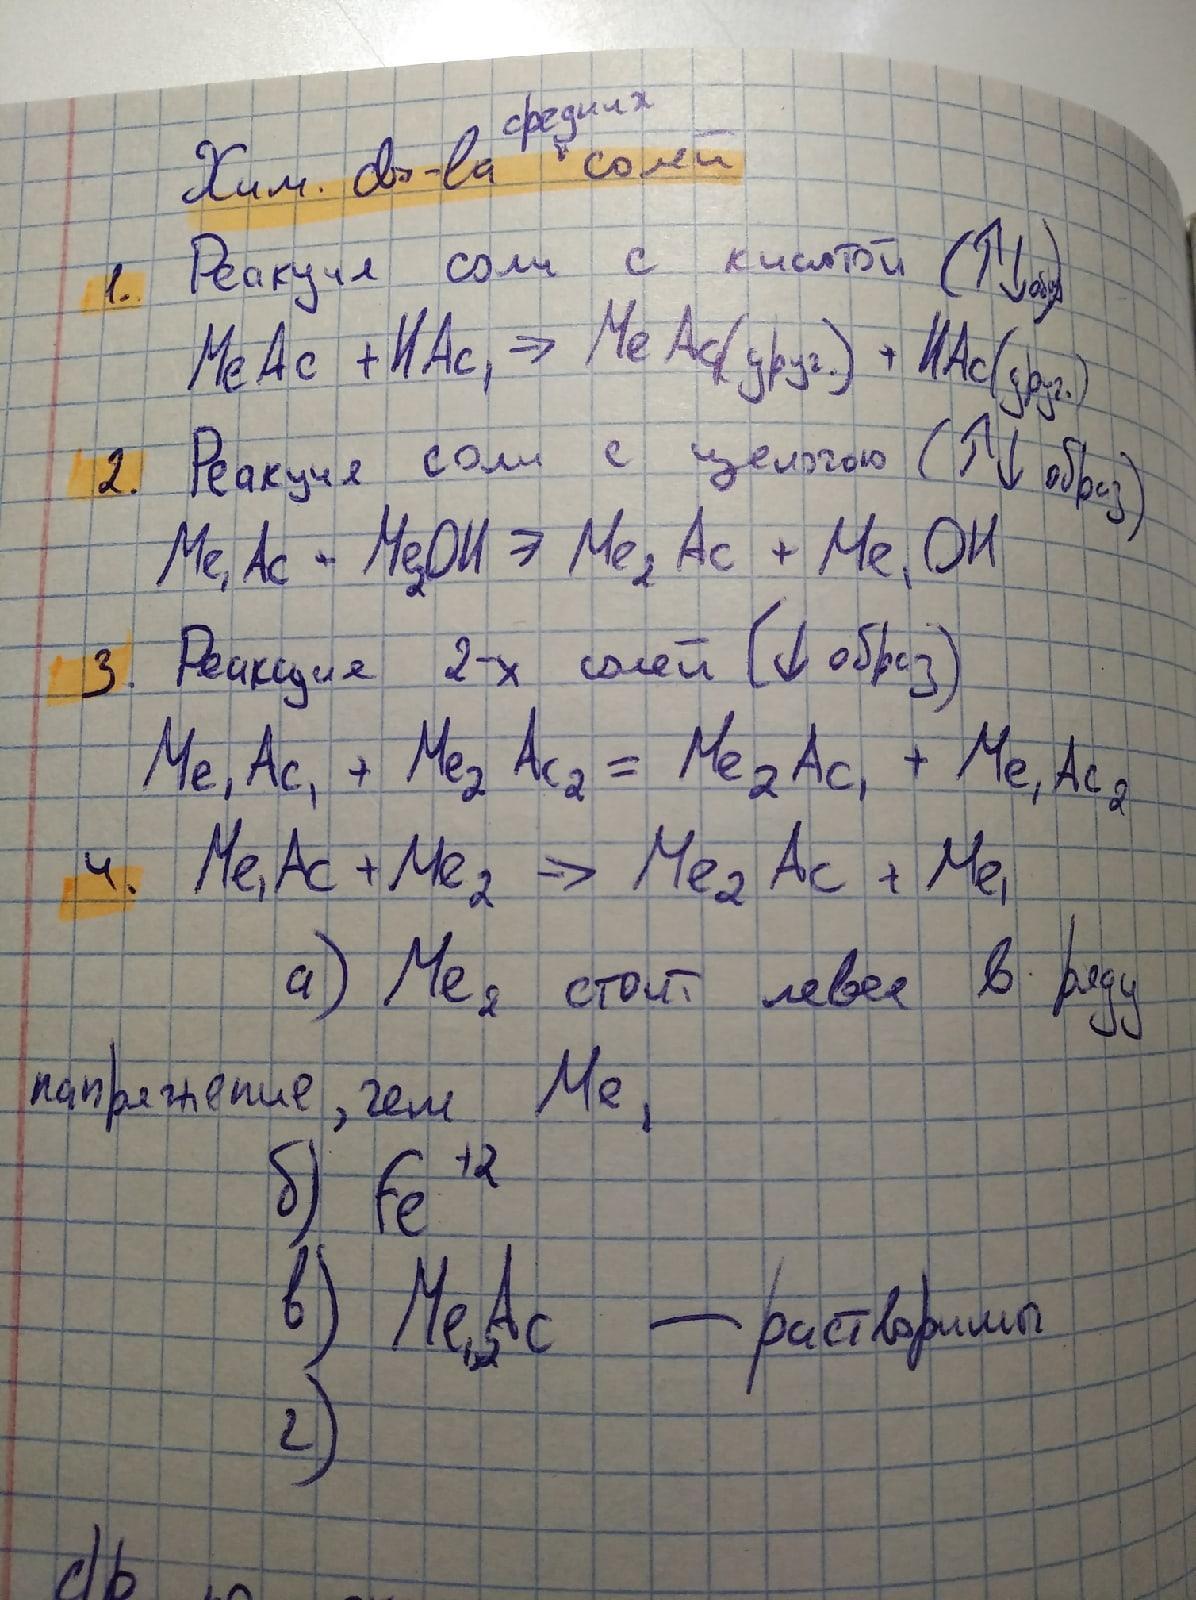 средних
Хим. св-ва солей
1. Реакция соли с кислотой (↑↓обр)
MeAc + HAc₁ → MeAc(друг.) + HAc(друг.)
2. Реакция соли с щелочою (↑↓ образ)
Me₁Ac - Me₂OH → Me₂Ac + Me₁OH
3. Реакция 2-х солей (↓ образ)
Me₁Ac₁ + Me₂Ac₂ = Me₂Ac₁ + Me₁Ac₂
4. Me₁Ac + Me₂ → Me₂Ac + Me₁
а) Me₂ стоит левее в ряду
напряжение, чем Me₁
б) Fe⁺²
в) Me₁,₂Ac — растворимы
г)